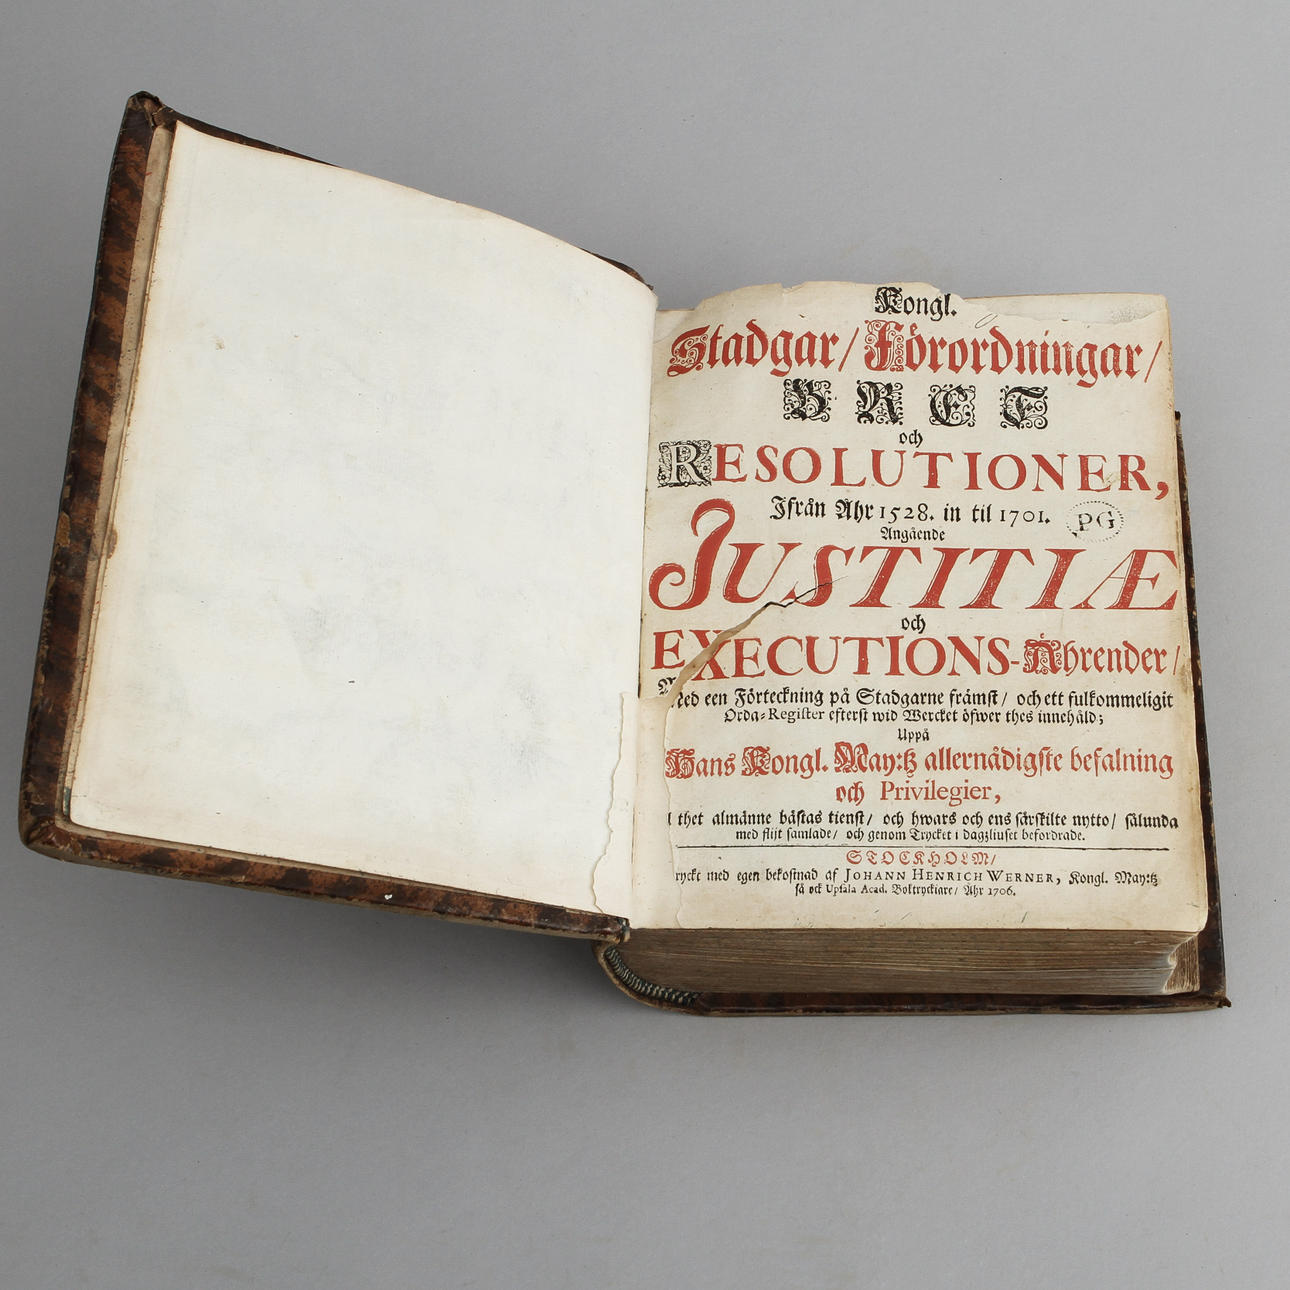 Kongl.
Stadgar/ Förordningar/
BREF
och
RESOLUTIONER,
Ifrån Åhr 1528. in til 1701.
PG
Angående
JUSTITIÆ
och
EXECUTIONS-Ährender/
Med een Förteckning på Stadgarne främst/ och ett fulkommeligit
Orda-Register efterst wid Wercket öfwer thes innehåld;
Uppå
Hans Kongl. May:tz allernådigste befalning
och Privilegier,
l thet almänne bästas tienst/ och hwars och ens särskilte nytto/ sålunda
med flijt samlade/ och genom Trycket i dagzliuset befordrade.
STOCKHOLM/
ryckt med egen bekostnad af JOHANN HENRICH WERNER, Kongl. May:tz
så ock Upsala Acad. Boktryckiare/ Åhr 1706.